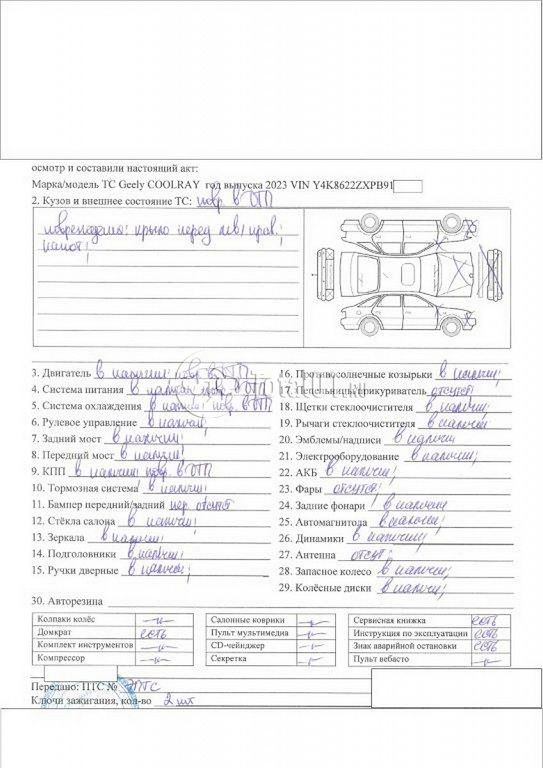 осмотр и составили настоящий акт:
Марка/модель ТС Geely COOLRAY год выпуска 2023 VIN Y4K8622ZXPB91
2. Кузов и внешнее состояние ТС: повр. в ДТП
повреждено: крыло перед лев/прав.;
капот;
3. Двигатель в наличии; повр. в ДТП
4. Система питания в наличии повр. в ДТП
5. Система охлаждения в наличии повр. в ДТП
6. Рулевое управление в наличии;
7. Задний мост в наличии;
8. Передний мост в наличии;
9. КПП в наличии повр. в ДТП
10. Тормозная система в наличии;
11. Бампер передний/задний пер. отсутст
12. Стёкла салона в наличии;
13. Зеркала в наличии;
14. Подголовники в наличии;
15. Ручки дверные в наличии;
16. Противосолнечные козырьки в наличии;
17. Пепельница/прикуриватель отсутст
18. Щетки стеклоочистителя в наличии;
19. Рычаги стеклоочистителя в наличии
20. Эмблемы/надписи в наличии
21. Электрооборудование в наличии;
22. АКБ в наличии;
23. Фары отсутст;
24. Задние фонари в наличии
25. Автомагнитола в наличии;
26. Динамики в наличии;
27. Антенна отсут;
28. Запасное колесо в наличии;
29. Колёсные диски в наличии;
30. Авторезина
Колпаки колёс —//— Салонные коврики —//— Сервисная книжка есть
Домкрат есть Пульт мультимедиа —//— Инструкция по эксплуатации есть
Комплект инструментов —//— CD-чейнджер —//— Знак аварийной остановки есть
Компрессор —//— Секретка —//— Пульт вебасто —//—
Передано: ПТС № ЭПТС
Ключи зажигания, кол-во 2 шт